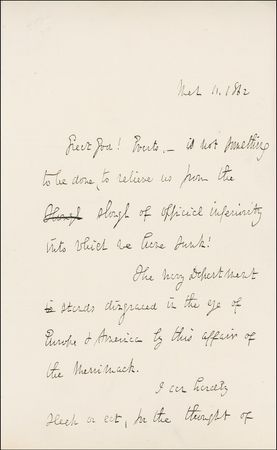 Mch 11. 1862
Great God! Evarts, – is not something
to be done, to relieve us from the
Slough slough of official inferiority
into which we have sunk!
The navy Department
is stands disgraced in the eye of
Europe & America by this affair of
the Merrimack.
I can hardly
sleep or eat, for the thought of